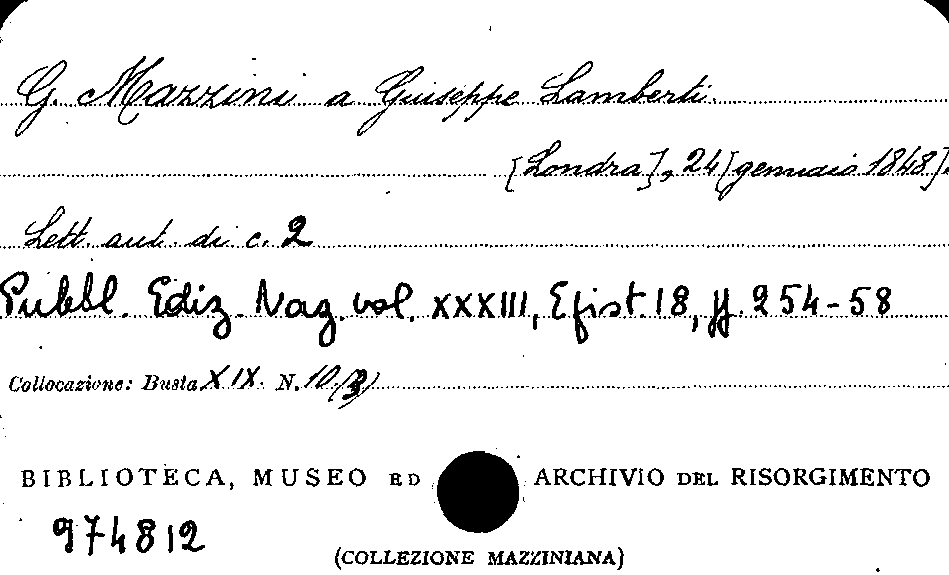 G. Mazzini a Giuseppe Lamberti.
[Londra], 24 [gennaio 1848].
Lett. aut. di c. 2
Pubbl. Ediz. Naz. vol. XXXIII, Epist. 18, pp. 254-58
Collocazione: Busta XIX. N. 10(3)
BIBLIOTECA, MUSEO ED ARCHIVIO DEL RISORGIMENTO
974812
(COLLEZIONE MAZZINIANA)